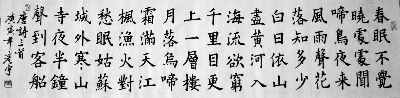 春眠不覺
曉處處聞
啼鳥夜來
風雨聲花
落知多少
白日依山
盡黄河入
海流欲窮
千里目更
上一層樓
月落烏啼
霜滿天江
楓漁火對
愁眠姑蘇
城外寒山
寺夜半鐘
聲到客船
唐詩三首